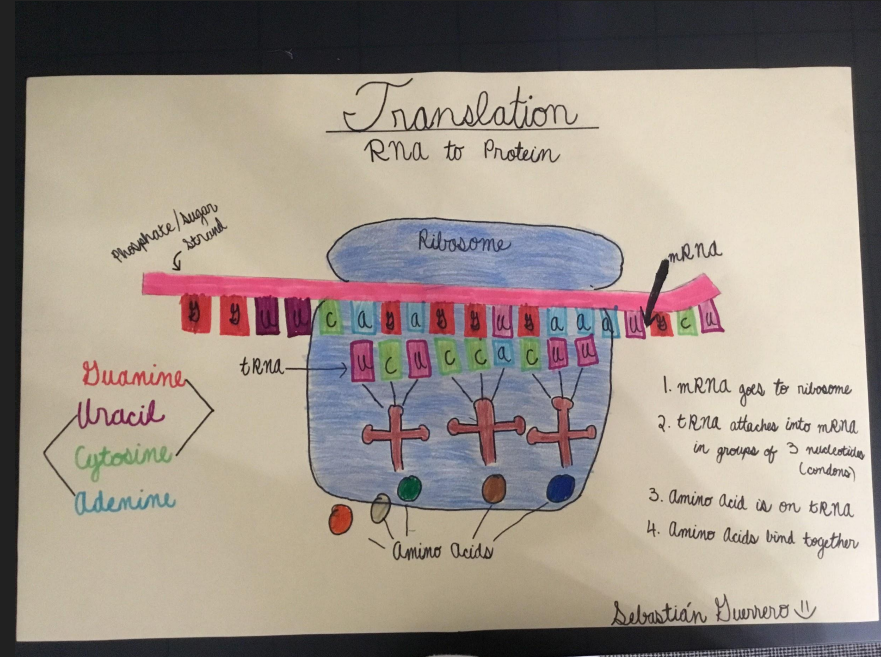 Translation
RNA to Protein
Phosphate/Sugar
Strand
Ribosome
mRNA
g g u u c a g a g g u g a a a u g c u
tRNA
u c u c c a c u u
Guanine
Uracil
Cytosine
Adenine
1. mRNA goes to ribosome
2. tRNA attaches into mRNA
in groups of 3 nucleotides
(condons)
3. Amino Acid is on tRNA
4. Amino Acids bind together
Amino Acids
Sebastián Guerrero